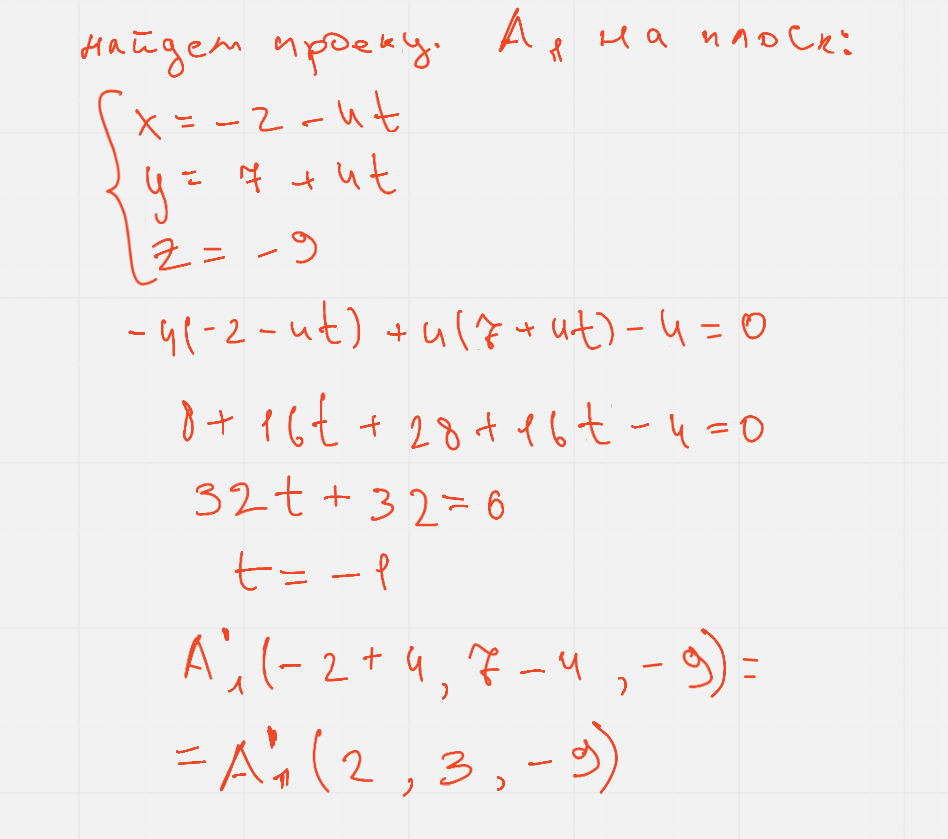 найдем проекц. A₁ на плоск:
x = -2 - 4t
y = 7 + 4t
z = -9
-4(-2 - 4t) + 4(7 + 4t) - 4 = 0
8 + 16t + 28 + 16t - 4 = 0
32t + 32 = 0
t = -1
A'₁(-2 + 4, 7 - 4, -9) =
= A'₁(2, 3, -9)